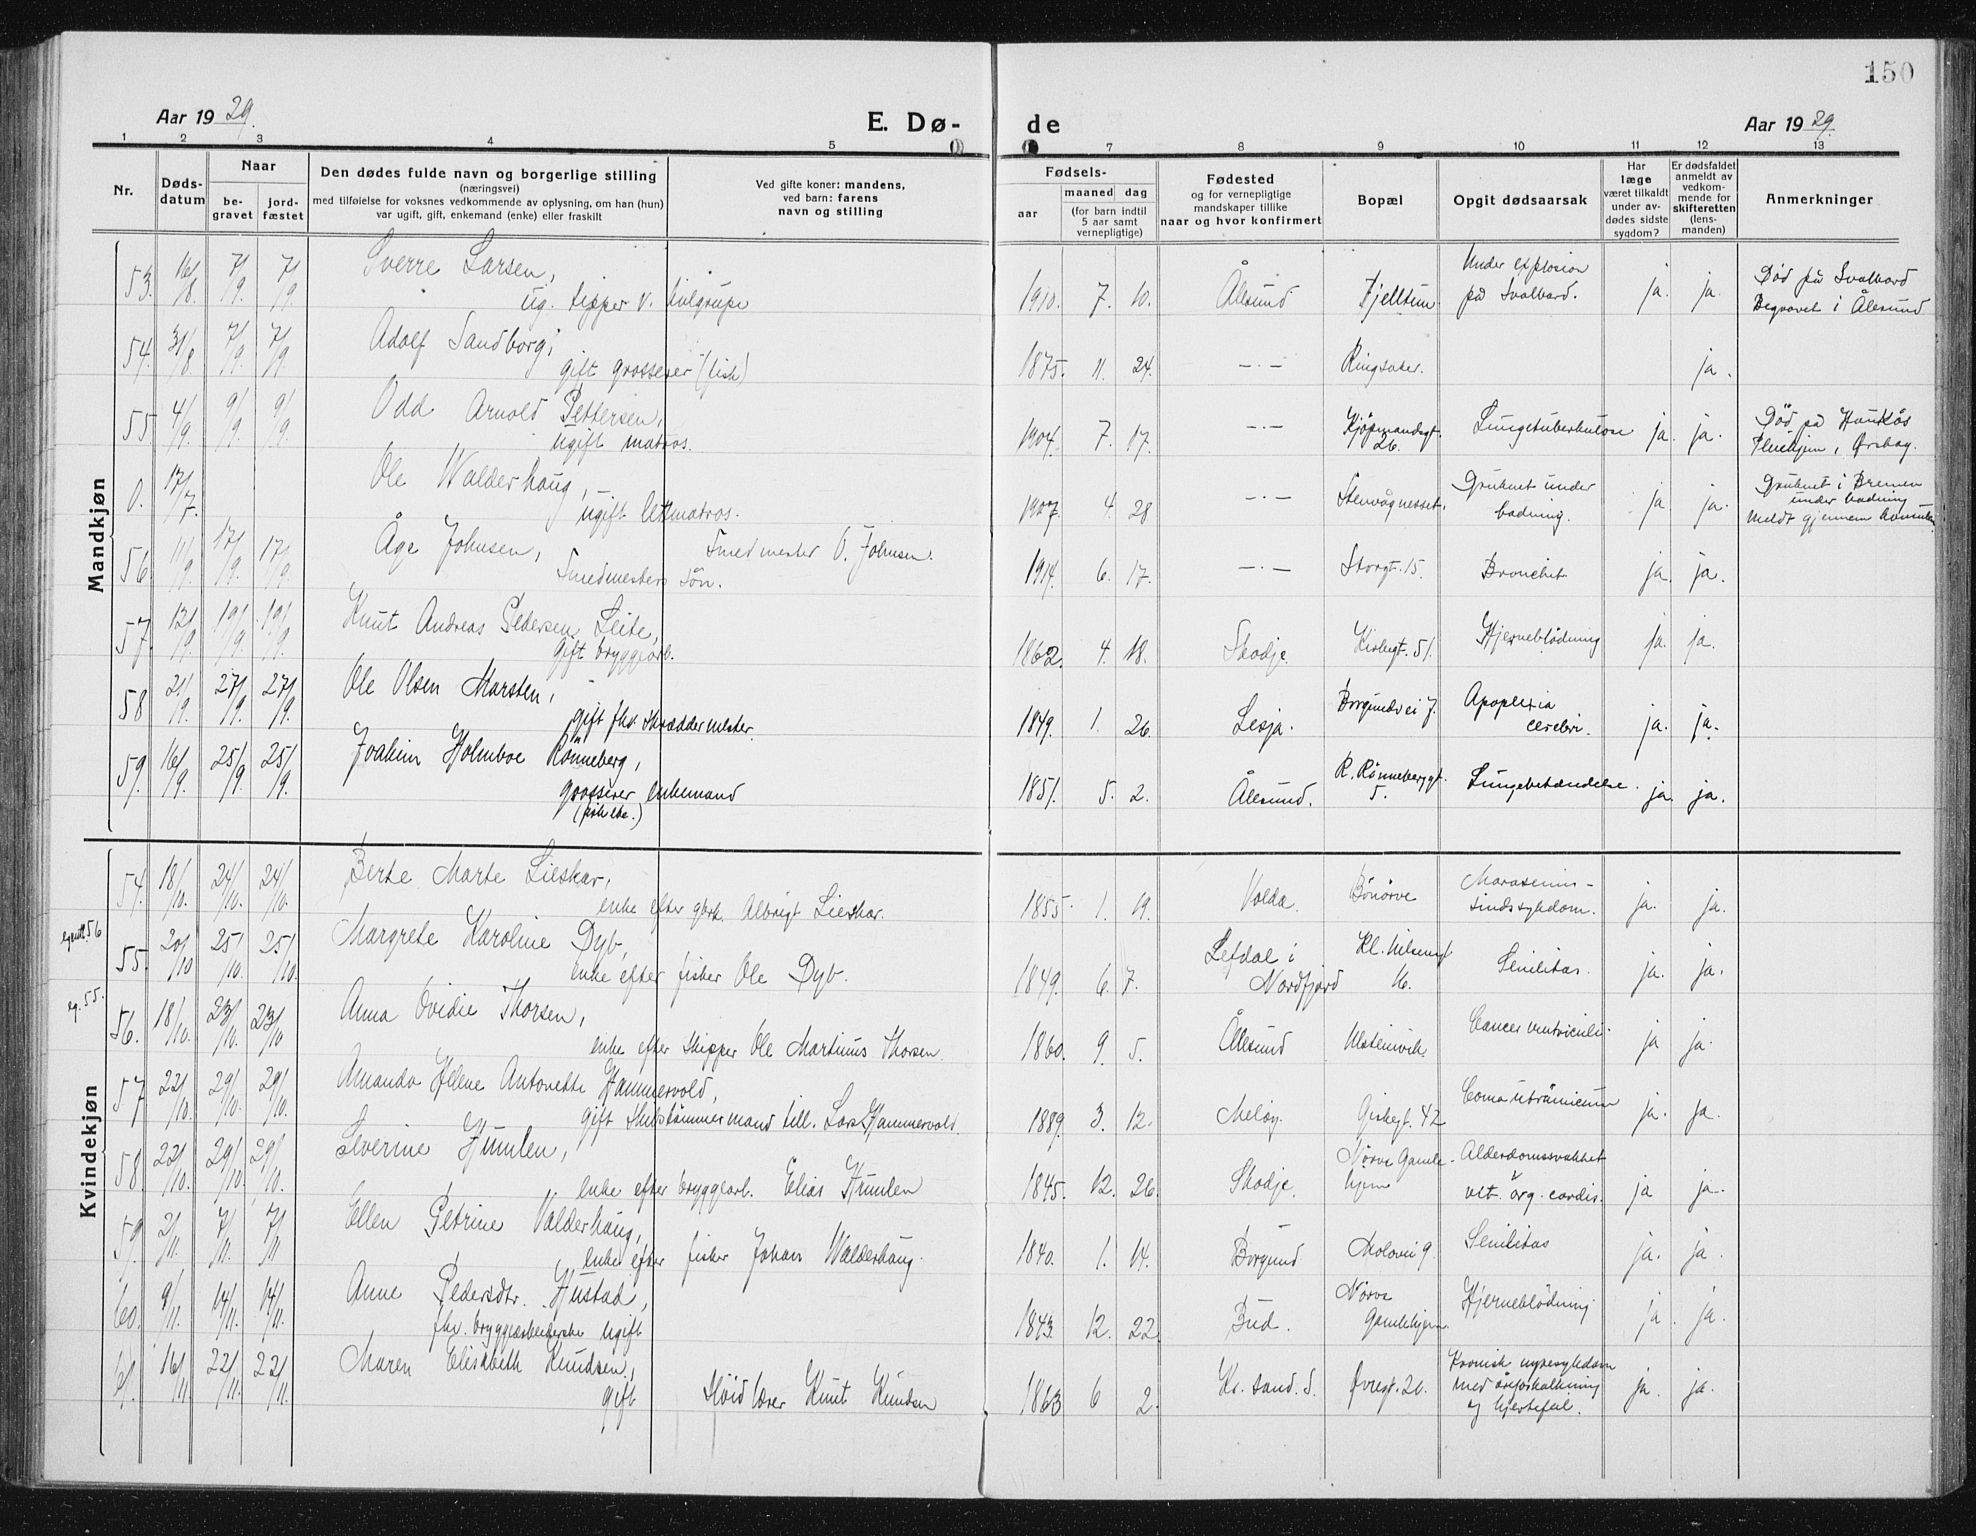 150
Aar 1929.
E. Dø-
de
Aar 1929.
1 2 3 4 5 7 8 9 10 11 12 13
Nr.
Døds-
datum
Naar
be-
gravet
jord-
fæstet
Den dødes fulde navn og borgerlige stilling
(næringsvei)
med tilføielse for voksnes vedkommende av oplysning, om han (hun)
var ugift, gift, enkemand (enke) eller fraskilt
Ved gifte koner: mandens,
ved barn: farens
navn og stilling
Fødsels-
aar
maaned
dag
(for barn indtil
5 aar samt
vernepligtige)
Fødested
og for vernepligtige
mandskaper tillike
naar og hvor konfirmert
Bopæl
Opgit dødsaarsak
Har
læge
været tilkaldt
under av-
dødes sidste
sygdom?
Er dødsfaldet
anmeldt av
vedkom-
mende for
skifteretten
(lens-
manden)
Anmerkninger
Mandkjøn
53. 16/8. 7/9. 7/9. Sverre Larsen,
ug. tipper v.
1910. 7. 10. Ålesund Fjelltun.
Under explosion
på Svalbard.
ja. ja.
Død på Svalbard
Begravet i Ålesund
54. 31/8 7/9. 7/9. Adolf Sandborg,
gift grosserer (fisk)
1875. 11. 24. —·— Ringsaker. ja.
55 4/9. 9/9 9/9. Odd Arnold Pettersen,
ugift matros.
1904. 7. 17. —·—
Kjøpmandsgt.
26.
Lungetuberkulose ja. ja.
Død på Haukås
Pleiehjem, Ørskog.
0. 17/7. Ole Walderhaug,
ugift lettmatros.
1907. 4. 28 —·— Stenvågnesset.
Druknet under
badning.
ja ja.
Druknet i Bremen
under badning
Meldt gjennem
56. 11/9. 17/9. 17/9. Åge Johnsen,
Smedmesters søn.
Smedmester O. Johnsen.
1914. 6. 17. —·— Storgt. 15. Bronchit ja. ja.
57. 12/9. 19/9. 19/9. Knut Andreas Pedersen Leite,
gift bryggearb.
1862. 4. 18. Skodje. Kirkegt. 51. Hjerneblødning ja. ja.
58 21/9. 27/9. 27/9. Ole Olsen Marsten,
gift fhv. skræddermester.
1849. 1. 26. Lesja. Borgundvei 7.
Apoplexia
cerebri.
ja. ja.
59. 16/9. 25/9. 25/9. Joakim Holmboe Rønneberg,
grosserer enkemand
1851. 5. 2. Ålesund.
R. Rønnebergsgt.
5.
Lungebetændelse ja. ja.
Kvindekjøn
54. 18/10. 24/10. 24/10. Birte Marte Lieskar,
enke efter gbrk. Albrigt Lieskar.
1855. 1. 19. Volda.
Marasenius -
sindssykdom.
ja. ja.
egentl. 56
55. 20/10 25/10. 25/10. Margrete Karoline Dyb,
enke efter fisker Ole Dyb.
1849. 6. 7.
Lefdal i
Nordfjord
Kl. Nilsensgt
16.
Senilitas ja. ja.
eg. 55.
56. 18/10. 23/10. 23/10 Anna Ovidie Thorsen,
enke efter skipper Ole Martinus Thorsen.
1860. 9. 5. Ålesund Ulsteinvik. Cancer ventriculi. ja ja.
57 22/10. 29/10. 29/10. Amanda Helene Antonette Hammervold,
gift Skibstømmermand till. Lars Hammervold.
1889. 3. 12. Meløy. Girkegt. 42 Coma uræmicum ja. ja.
58. 22/10. 29/10 29/10. Severine Humlen,
enke efter bryggearb. Elias Humlen
1845. 12. 26. Skodje.
Nørve Gamle-
hjem
Alderdomssvakhet
vit. org. cordis.
ja ja.
59. 2/11. 7/11. 7/11 Ellen Petrine Valderhaug,
enke efter fisker Johan Walderhaug.
1840. 1. 14. Borgund Molovei 9. Senilitas ja. ja.
60. 9/11. 14/11. 14/11. Anne Pedersdtr. Hustad,
fhv. bryggearbeiderske ugift
1843. 12. 22. Bud.
Nørve
Gamlehjem.
Hjerneblødning ja. ja.
61. 16/11. 22/11. 22/11. Maren Elisabeth Knudsen,
gift Knut Knudsen
1863 6 2. Kr. sand. S. Øvregt. 20.
Kronisk nyresykdom
med åreforkalkning
og hjertefeil.
ja. ja.